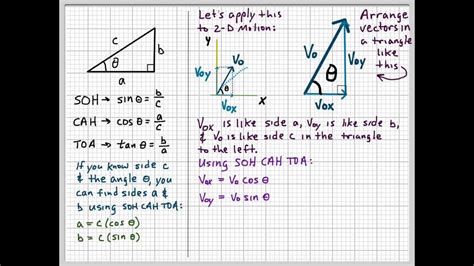 c
b
θ
a
SOH → sin θ = b/c
CAH → cos θ = a/c
TOA → tan θ = b/a
If you know side c
& the angle θ, you
can find sides a &
b using SOH CAH TOA:
a = c (cos θ)
b = c (sin θ)
Let's apply this
to 2-D Motion:
y
Voy
Vo
θ
Vox
x
Vo
Voy
θ
Vox
Arrange
vectors in
a triangle
like
this
Vox is like side a, Voy is like side b,
& Vo is like side c in the triangle
to the left.
Using SOH CAH TOA:
Vox = Vo cos θ
Voy = Vo sin θ